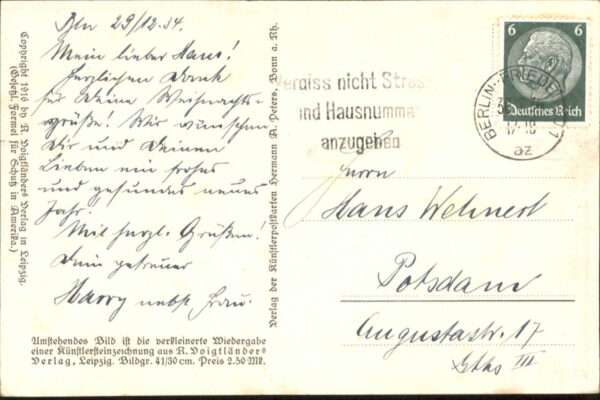 Bln 29/12.34.
Mein lieber Hans!
Herzlichen Dank
für Deine Weihnachts-
grüße! Wir wünschen
Dir und Deinen
Lieben ein frohes
und gesundes neues
Jahr.
Mit herzl. Grüßen!
Dein getreuer
Harry nebst Frau.
Copyright 1916 by R. Voigtländers Verlag in Leipzig.
(Gesetzl. Formel für Schutz in Amerika.)
Umstehendes Bild ist die verkleinerte Wiedergabe
einer Künstlersteinzeichnung aus R. Voigtländers
Verlag, Leipzig. Bildgr. 41/30 cm. Preis 2.50 Mk.
Verlag der Künstlerpostkarten Hermann A. Peters, Bonn a. Rh.
Vergiss nicht Strass
und Hausnummer
anzugeben
6 6
Deutsches Reich
BERLIN-FRIEDENAU
az
Herrn
Hans Wehnert
Potsdam
Augustastr. 17
Gths III